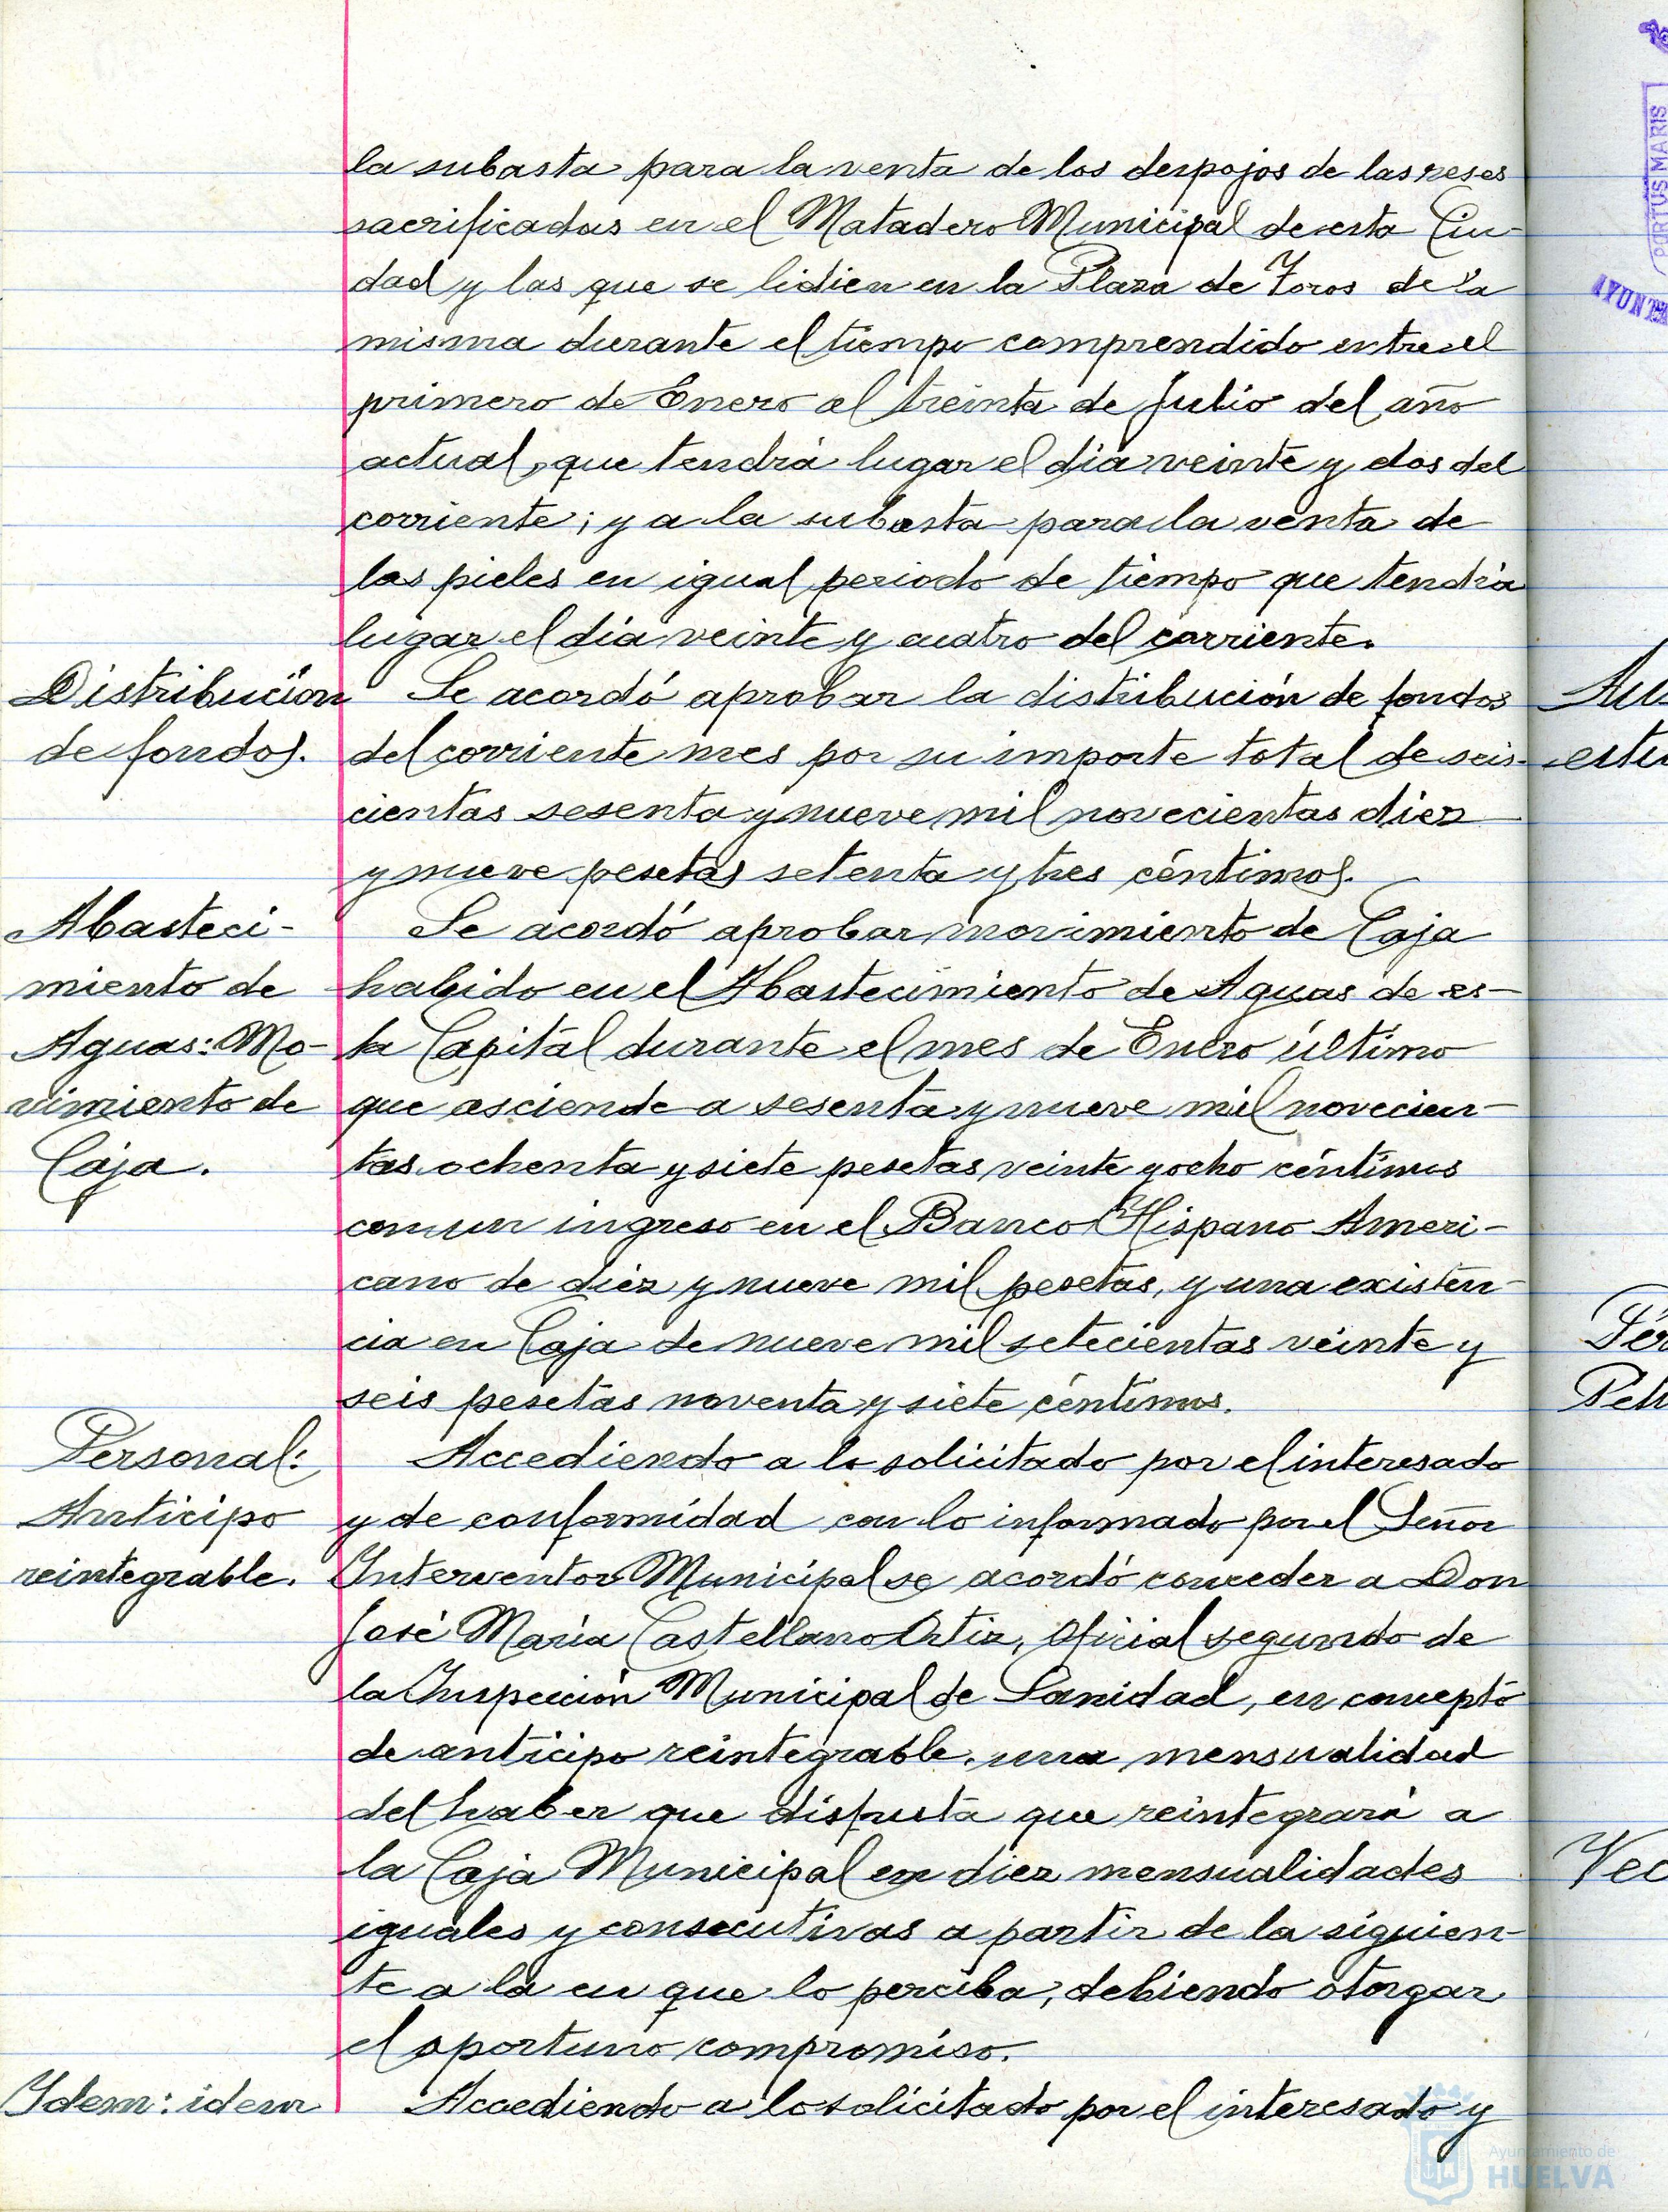 la subasta para la venta de los despojos de las reses
sacrificadas en el Matadero Municipal de esta Ciu-
dad y las que se lidien en la Plaza de Toros de la
misma durante el tiempo comprendido entre el
primero de Enero al treinta de Julio del año
actual, que tendrá lugar el dia veinte y dos del
corriente; y a la subasta para la venta de
las pieles en igual periodo de tiempo que tendrá
lugar el dia veinte y cuatro del corriente.
Distribución
de fondos.
Se acordó aprobar la distribución de fondos
del corriente mes por su importe total de seis-
cientas sesenta y nueve mil novecientas diez
y nueve pesetas setenta y tres céntimos.
Abasteci-
miento de
Aguas: Mo-
vimiento de
Caja.
Se acordó aprobar movimiento de Caja
habido en el Abastecimiento de Aguas de es-
ta Capital durante el mes de Enero último
que asciende a sesenta y nueve mil novecien-
tas ochenta y siete pesetas veinte y ocho céntimos
con un ingreso en el Banco Hispano Ameri-
cano de diez y nueve mil pesetas, y una existen-
cia en Caja de nueve mil setecientas veinte y
seis pesetas noventa y siete céntimos.
Personal:
Anticipo
reintegrable.
Accediendo a lo solicitado por el interesado
y de conformidad con lo informado por el Señor
Interventor Municipal se acordó conceder a Don
José María Castellano Ortiz, Oficial segundo de
la Inspección Municipal de Sanidad, en concepto
de anticipo reintegrable, una mensualidad
del haber que disfruta que reintegrará a
la Caja Municipal en diez mensualidades
iguales y consecutivas a partir de la siguien-
te a la en que lo perciba, debiendo otorgar
el oportuno compromiso.
Idem: idem
Accediendo a lo solicitado por el interesado y
PORTUS MARIS
AYUNTA
Au-
estu
Per
Peti
Vec
Ayuntamiento de
HUELVA